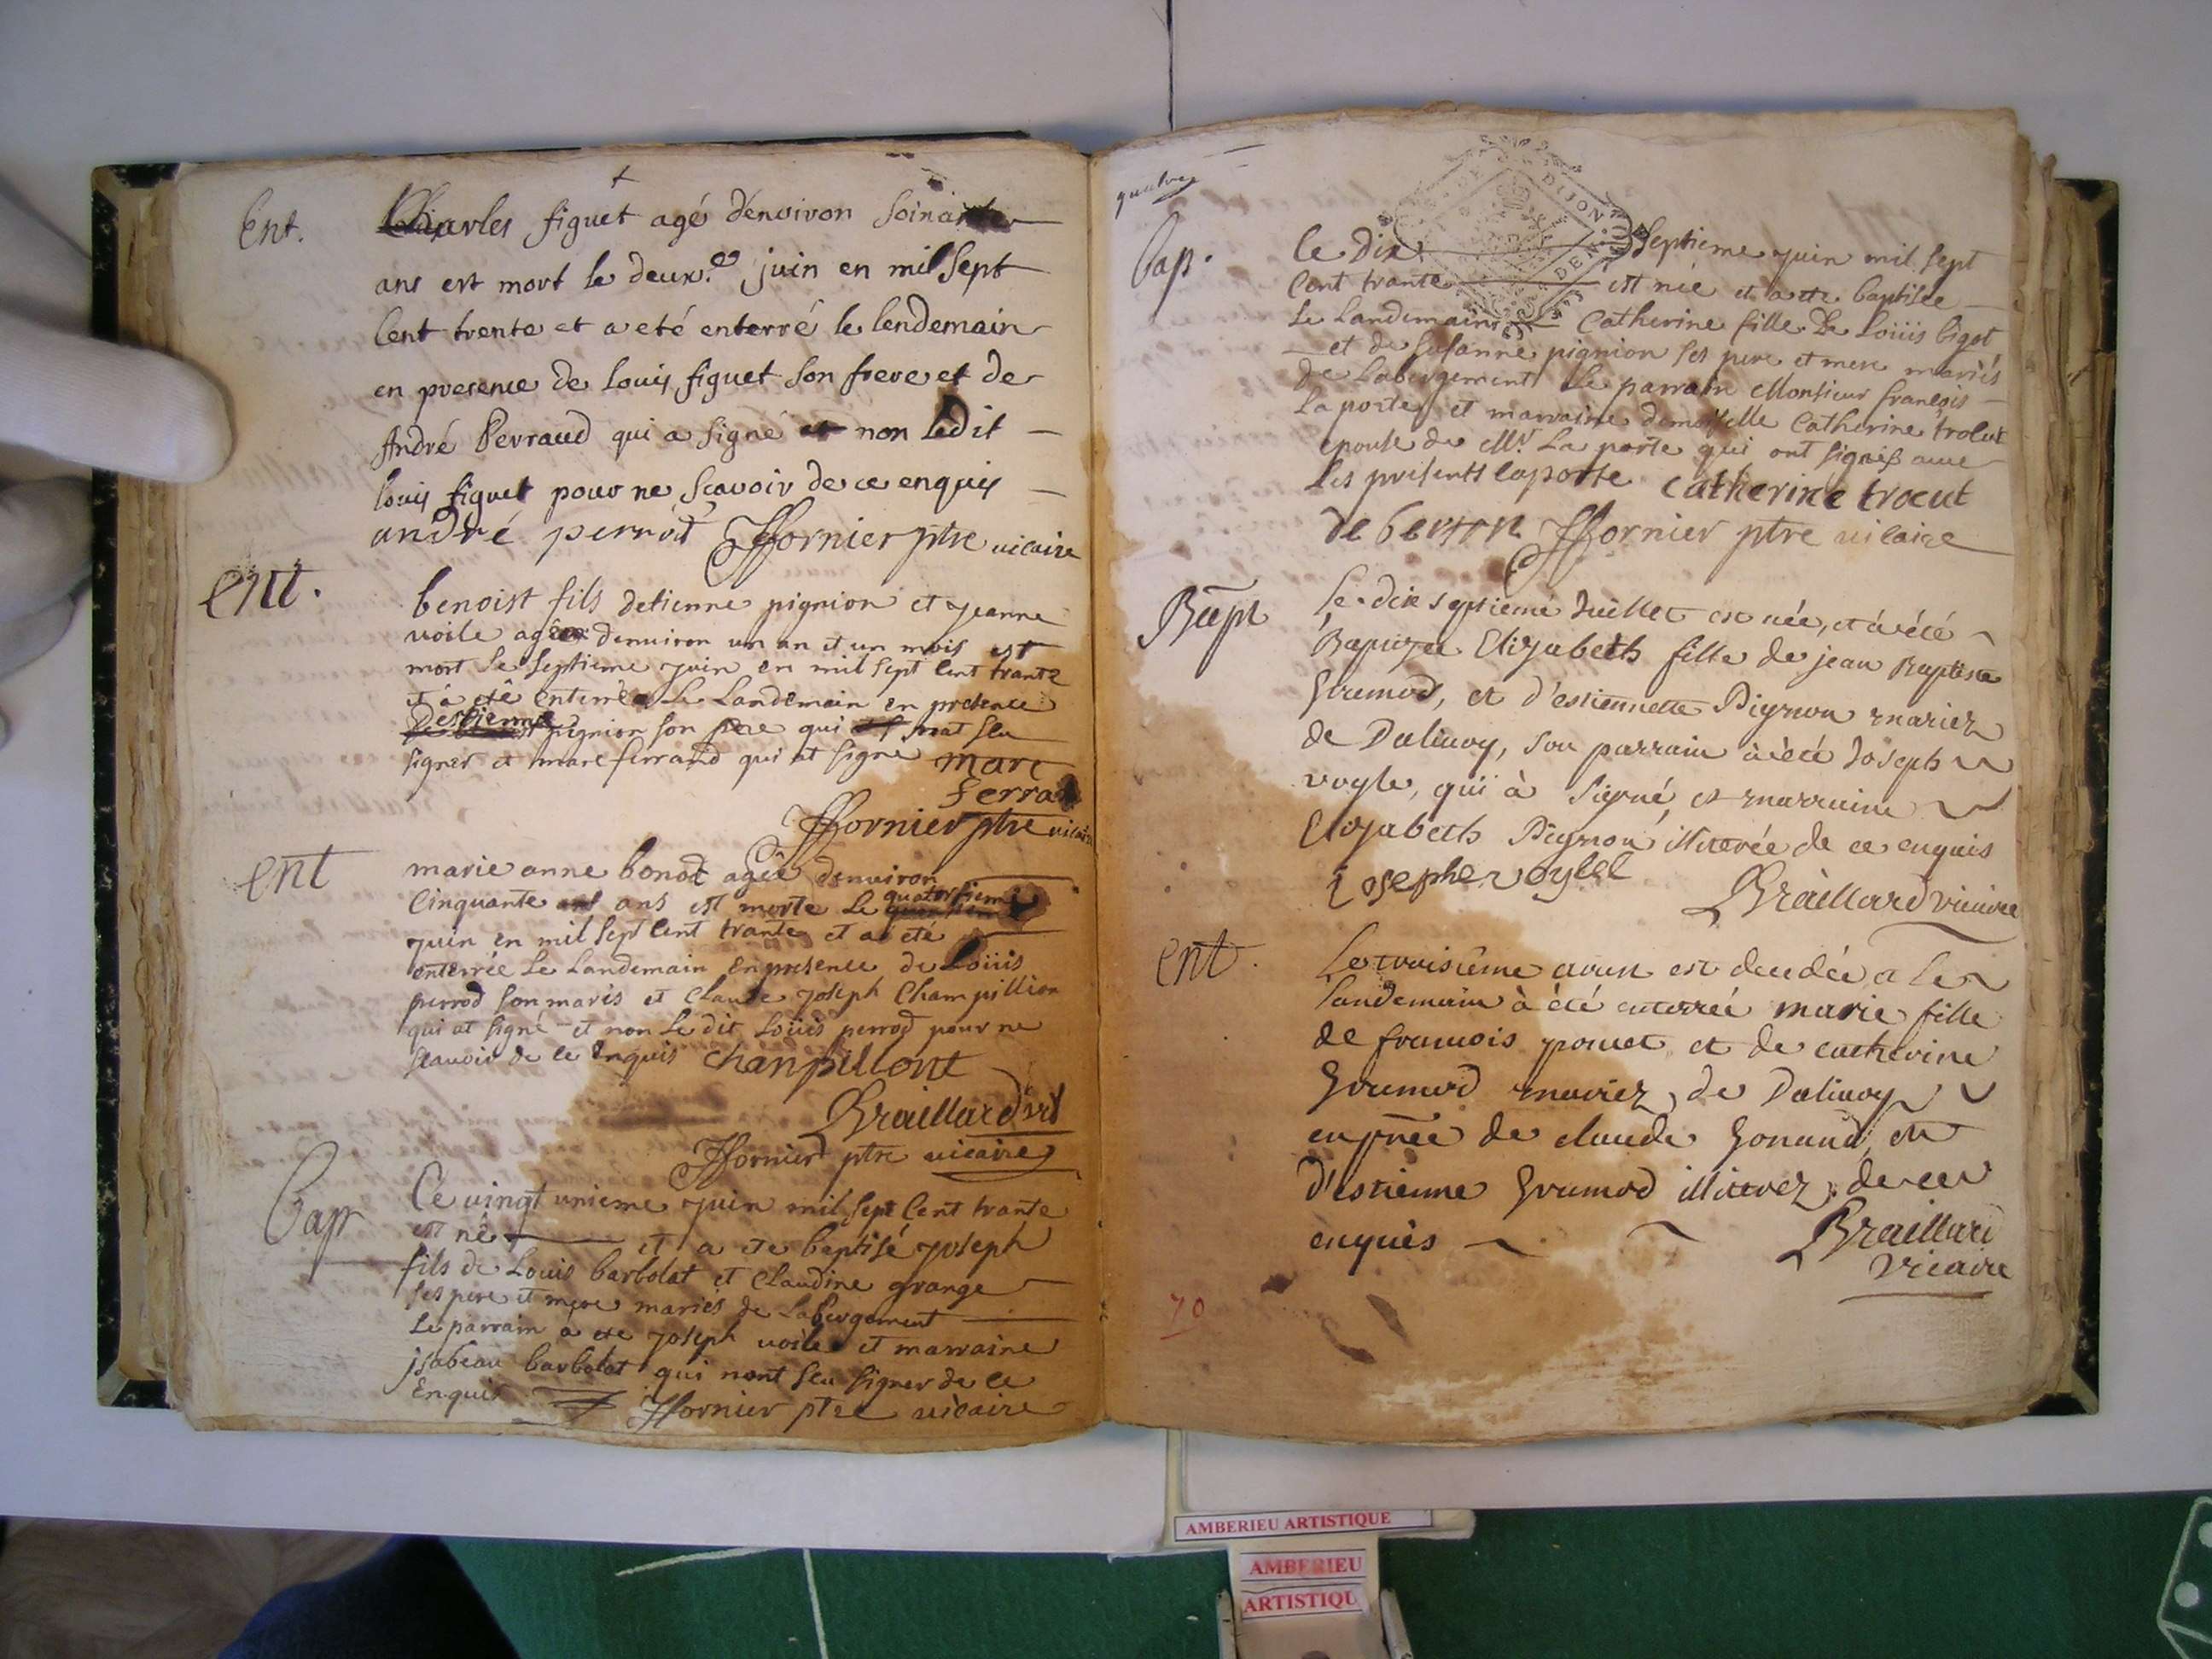 Ent.
Charles figuet agé dénvivon soinante
ans est mort le deux.e juin en mil sept
Cent trente et a eté enterré le lendemain
en presence de louis figuet son frere et de
André Perraud qui a signé et non ledit
louis figuet pour ne scavoir de ce enquis
andré perrot ffornier ptre vicaire
ent.
benoist fils detienne pignion et jeanne
voile agé denuiron un an et un mois est
mort le septieme juin en mil sept cent trante
et à eté enterré le Landemain en presence
Destienne pignion son pere qui nat sceu
signer et marc ferrand qui at signe marc
ferra
ffornier ptre vicaire
ent
marie anne bonod agée denuiron
Cinquante ans est morte le quatorsieme
juin en mil sept cent trante et a eté
enterrée le Landemain en presence de Loüis
perrod son maris et Claude joseph Champillion
qui at signé et non le dit Loüis perrod pour ne
scauoir de ce enquis chanpillont
Braillard vic
ffornier ptre vicaire
bap
Ce vingt unieme juin mil sept cent trante
est né et a ete baptisé joseph
fils de Louis barbolat et Claudine grange
ses pere et mere mariés de Labergement
Le parrain à ete joseph voile et marraine
jsabeau barbolat qui nont sceu signer de ce
Enquis ffornier ptre vicaire
quatre
DIJON
bap.
Ce Dix Septieme juin mil sept
Cent trante est née et a ete baptisée
Le Landemain Catherine fille De Loüis bigot
et de susanne pignion ses pere et mere mariés
de Labergement Le parrain Monsieur françois
Laporte et marraine demoiselle Catherine
epouse de Mr. La porte qui ont signés auec
les presents laporte catherine troeut
de berron ffornier ptre vicaire
Bapt
Le dix septieme Juillet est née, et à été
Baptizée Elizabeth fille de jean Baptiste
Grumod, et d'estiennette Pignon mariez
de Dalivoy, son parrain à été Joseph
voyle, qui à signé, et marraine
Elizabeth Pignon illiterée de ce enquis
josephe voylle
Braillard vicaire
ent.
Le troisième aoust est decedée et le
landemain à été enterrée marie fille
de francois ponet et de catherine
Grumod mariez, de Dalivoy
en pñce de claude Gonand et
d'estienne Grumod illiterez, de ce
enquis Braillard
vicaire
70
AMBERIEU ARTISTIQUE
AMBERIEU
ARTISTIQU